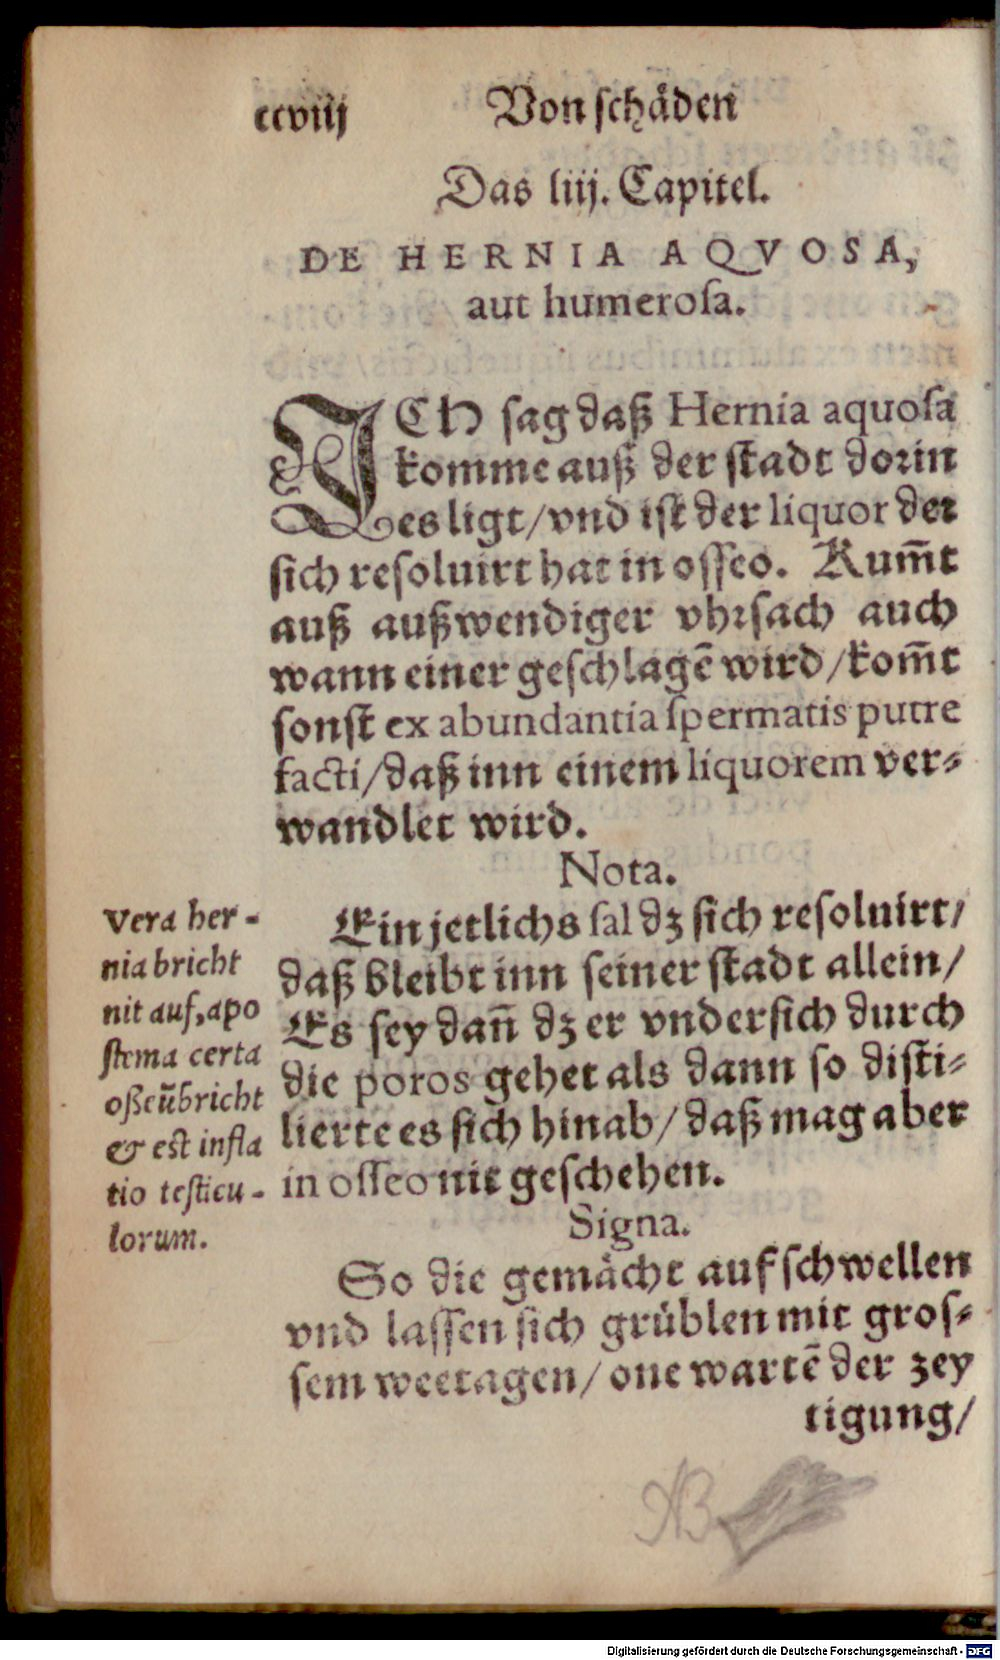 ccviij
Von schäden
Das liij. Capitel.
DE HERNIA AQVOSA,
aut humerosa.
ICH sag daß Hernia aquosa
komme auß der stadt dorin
es ligt/vnd ist der liquor der
sich resoluirt hat in osseo. Kum̄t
auß außwendiger vhrsach auch
wann einer geschlagē wird/kom̄t
sonst ex abundantia spermatis putre
facti/daß inn einem liquorem ver-
wandlet wird.
Nota.
Ein jetlichs sal dz sich resoluirt/
daß bleibt inn seiner stadt allein/
Es sey dan̄ dz er vndersich durch
die poros gehet als dann so disti-
lierte es sich hinab/daß mag aber
in osseo nit geschehen.
Vera her-
nia bricht
nit auf, apo
stema certa
oßeū bricht
& est infla
tio testicu-
lorum.
Signa.
So die gemächt aufschwellen
vnd lassen sich grüblen mit gros-
sem weetagen/one wartē der zey
tigung/
NB
Digitalisierung gefördert durch die Deutsche Forschungsgemeinschaft - DFG